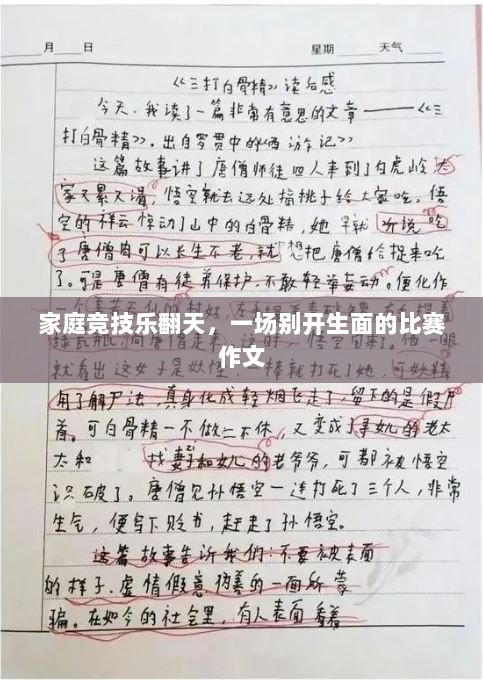 月 日 星期 天气
《三打白骨精》读后感
今天，我读了一篇非常有意思的文章——《三
打白骨精》。出自罗贯中的《西游记》
这篇故事讲了唐僧师徒四人来到了白虎岭大
家又累又渴，悟空就去远处摘桃子给大家吃。悟
空的祥云惊动了山中的白骨精，她早就听说吃
了唐僧肉可以长生不老，就想把唐僧给捉来吃
了。可是唐僧有徒弟保护，不敢轻举妄动。便化作
家庭竞技乐翻天，一场别开生面的比赛
作文
就看出这女子是妖 棒就打死了她，可妖精
用了解尸法，真身化成轻烟飞走了，留下的是假尸
首。可白骨精一不做二不休，又变成了寻女儿的老太
太和 找妻子和女儿的老爷爷，可都被悟空
识破了。唐僧见孙悟空一连打死了三个人，非常
生气，便写下贬书，赶走了孙悟空。
这篇故事告诉我们：不要被表面
的样子，虚情假意伪善的一面所蒙
骗。在如今的社会里，有人表面看着